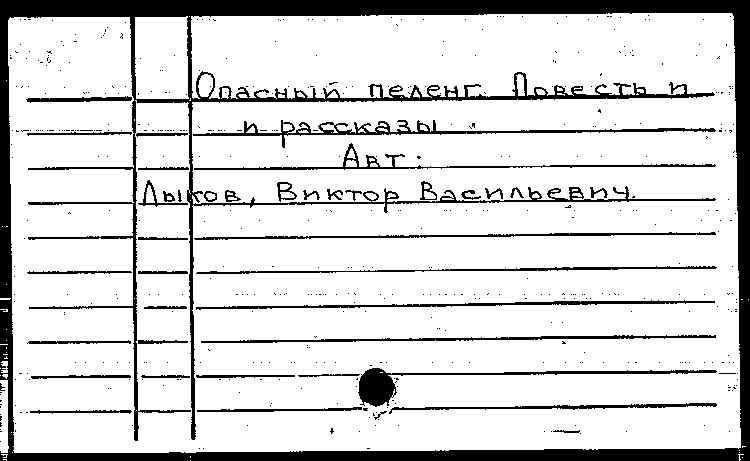 Опасный пеленг. Повесть и
и рассказы.
Авт:
Лыков, Виктор Васильевич.